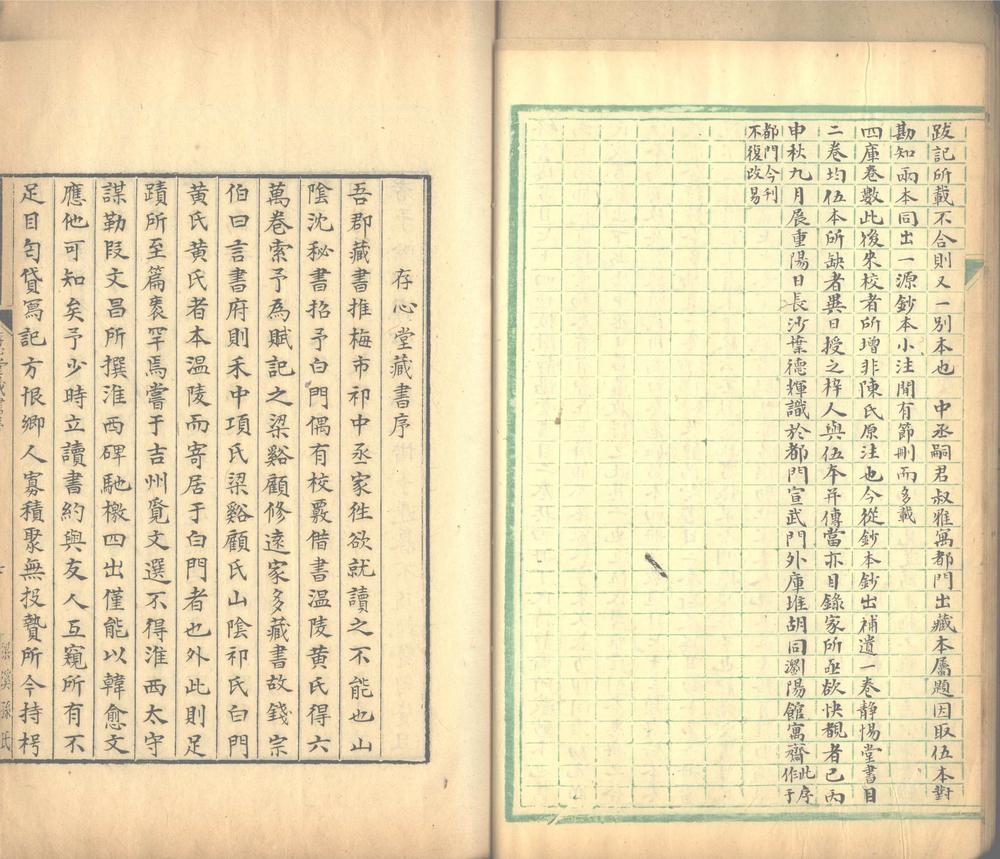 跋記所載不合則又一別本也　中丞嗣君叔雅寓都門出藏本屬題因取伍本對
勘知兩本同出一源鈔本小注間有節刪而多載
四庫卷數此後來校者所增非陳氏原注也今從鈔本鈔出補遺一卷靜惕堂書目
二卷均伍本所缺者異日授之梓人與伍本并傳當亦目錄家所亟欲快覩者已丙
申秋九月展重陽日長沙葉德輝識於都門宣武門外庫堆胡同瀏陽館寓齋此序作于
都門今刊
不復改易
存心堂藏書序
吾郡藏書推梅市祁中丞家徃欲就讀之不能也山
陰沈秘書招予白門偶有校覈借書溫陵黃氏得六
萬卷索予為賦記之梁谿顧修遠家多藏書故錢宗
伯曰言書府則禾中項氏梁谿顧氏山陰祁氏白門
黃氏黃氏者本溫陵而寄居于白門者也外此則足
蹟所至篇袠罕焉嘗于吉州覓文選不得淮西太守
謀勒段文昌所撰淮西碑馳檄四出僅能以韓愈文
應他可知矣予少時立讀書約與友人互窺所有不
足目匄貸寫記方恨鄉人寡積聚無投贄所今持樗
梁溪孫氏